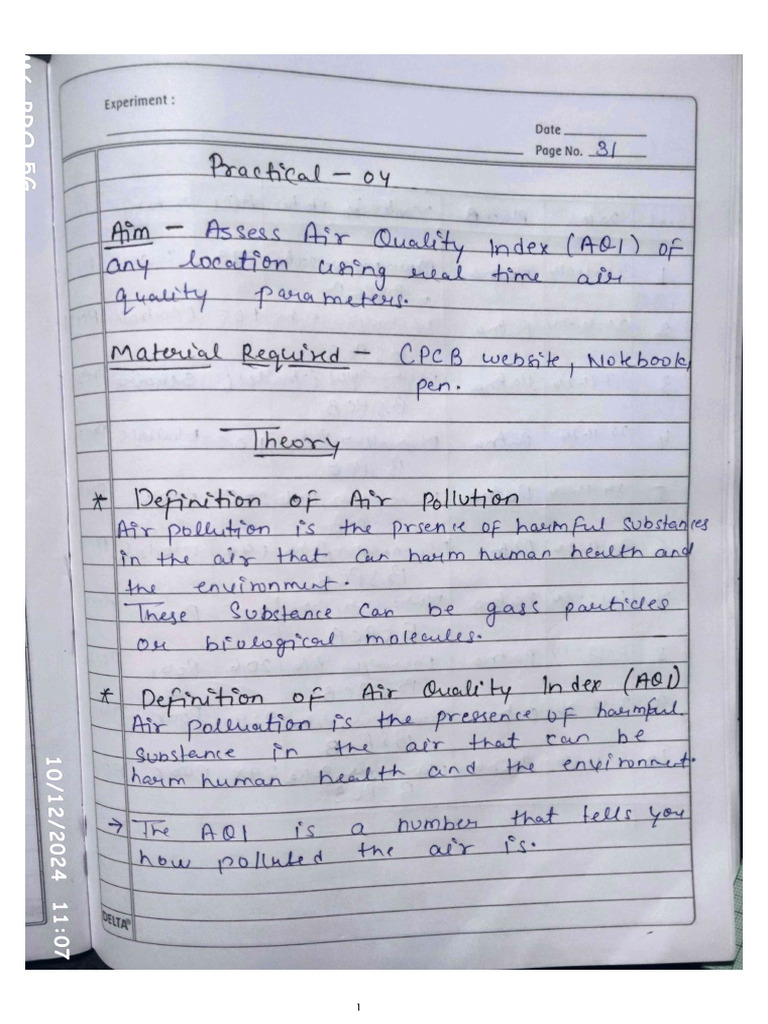 Experiment :
Date
Page No. 31
Practical - 04
Aim - Assess Air Quality Index (AQI) of
any location using real time air
quality parameters.
Material Required - CPCB website, Notebook,
pen.
Theory
* Definition of Air Pollution
Air pollution is the prsence of harmful substances
in the air that can harm human health and
the environment.
These Substance can be gass particles
or biological molecules.
* Definition of Air Quality Index (AQI)
Air polluation is the pressence of harmful
substance in the air that can be
harm human health and the environment.
→ The AQI is a number that tells you
how polluted the air is.
DELTA
10/12/2024 11:07
1